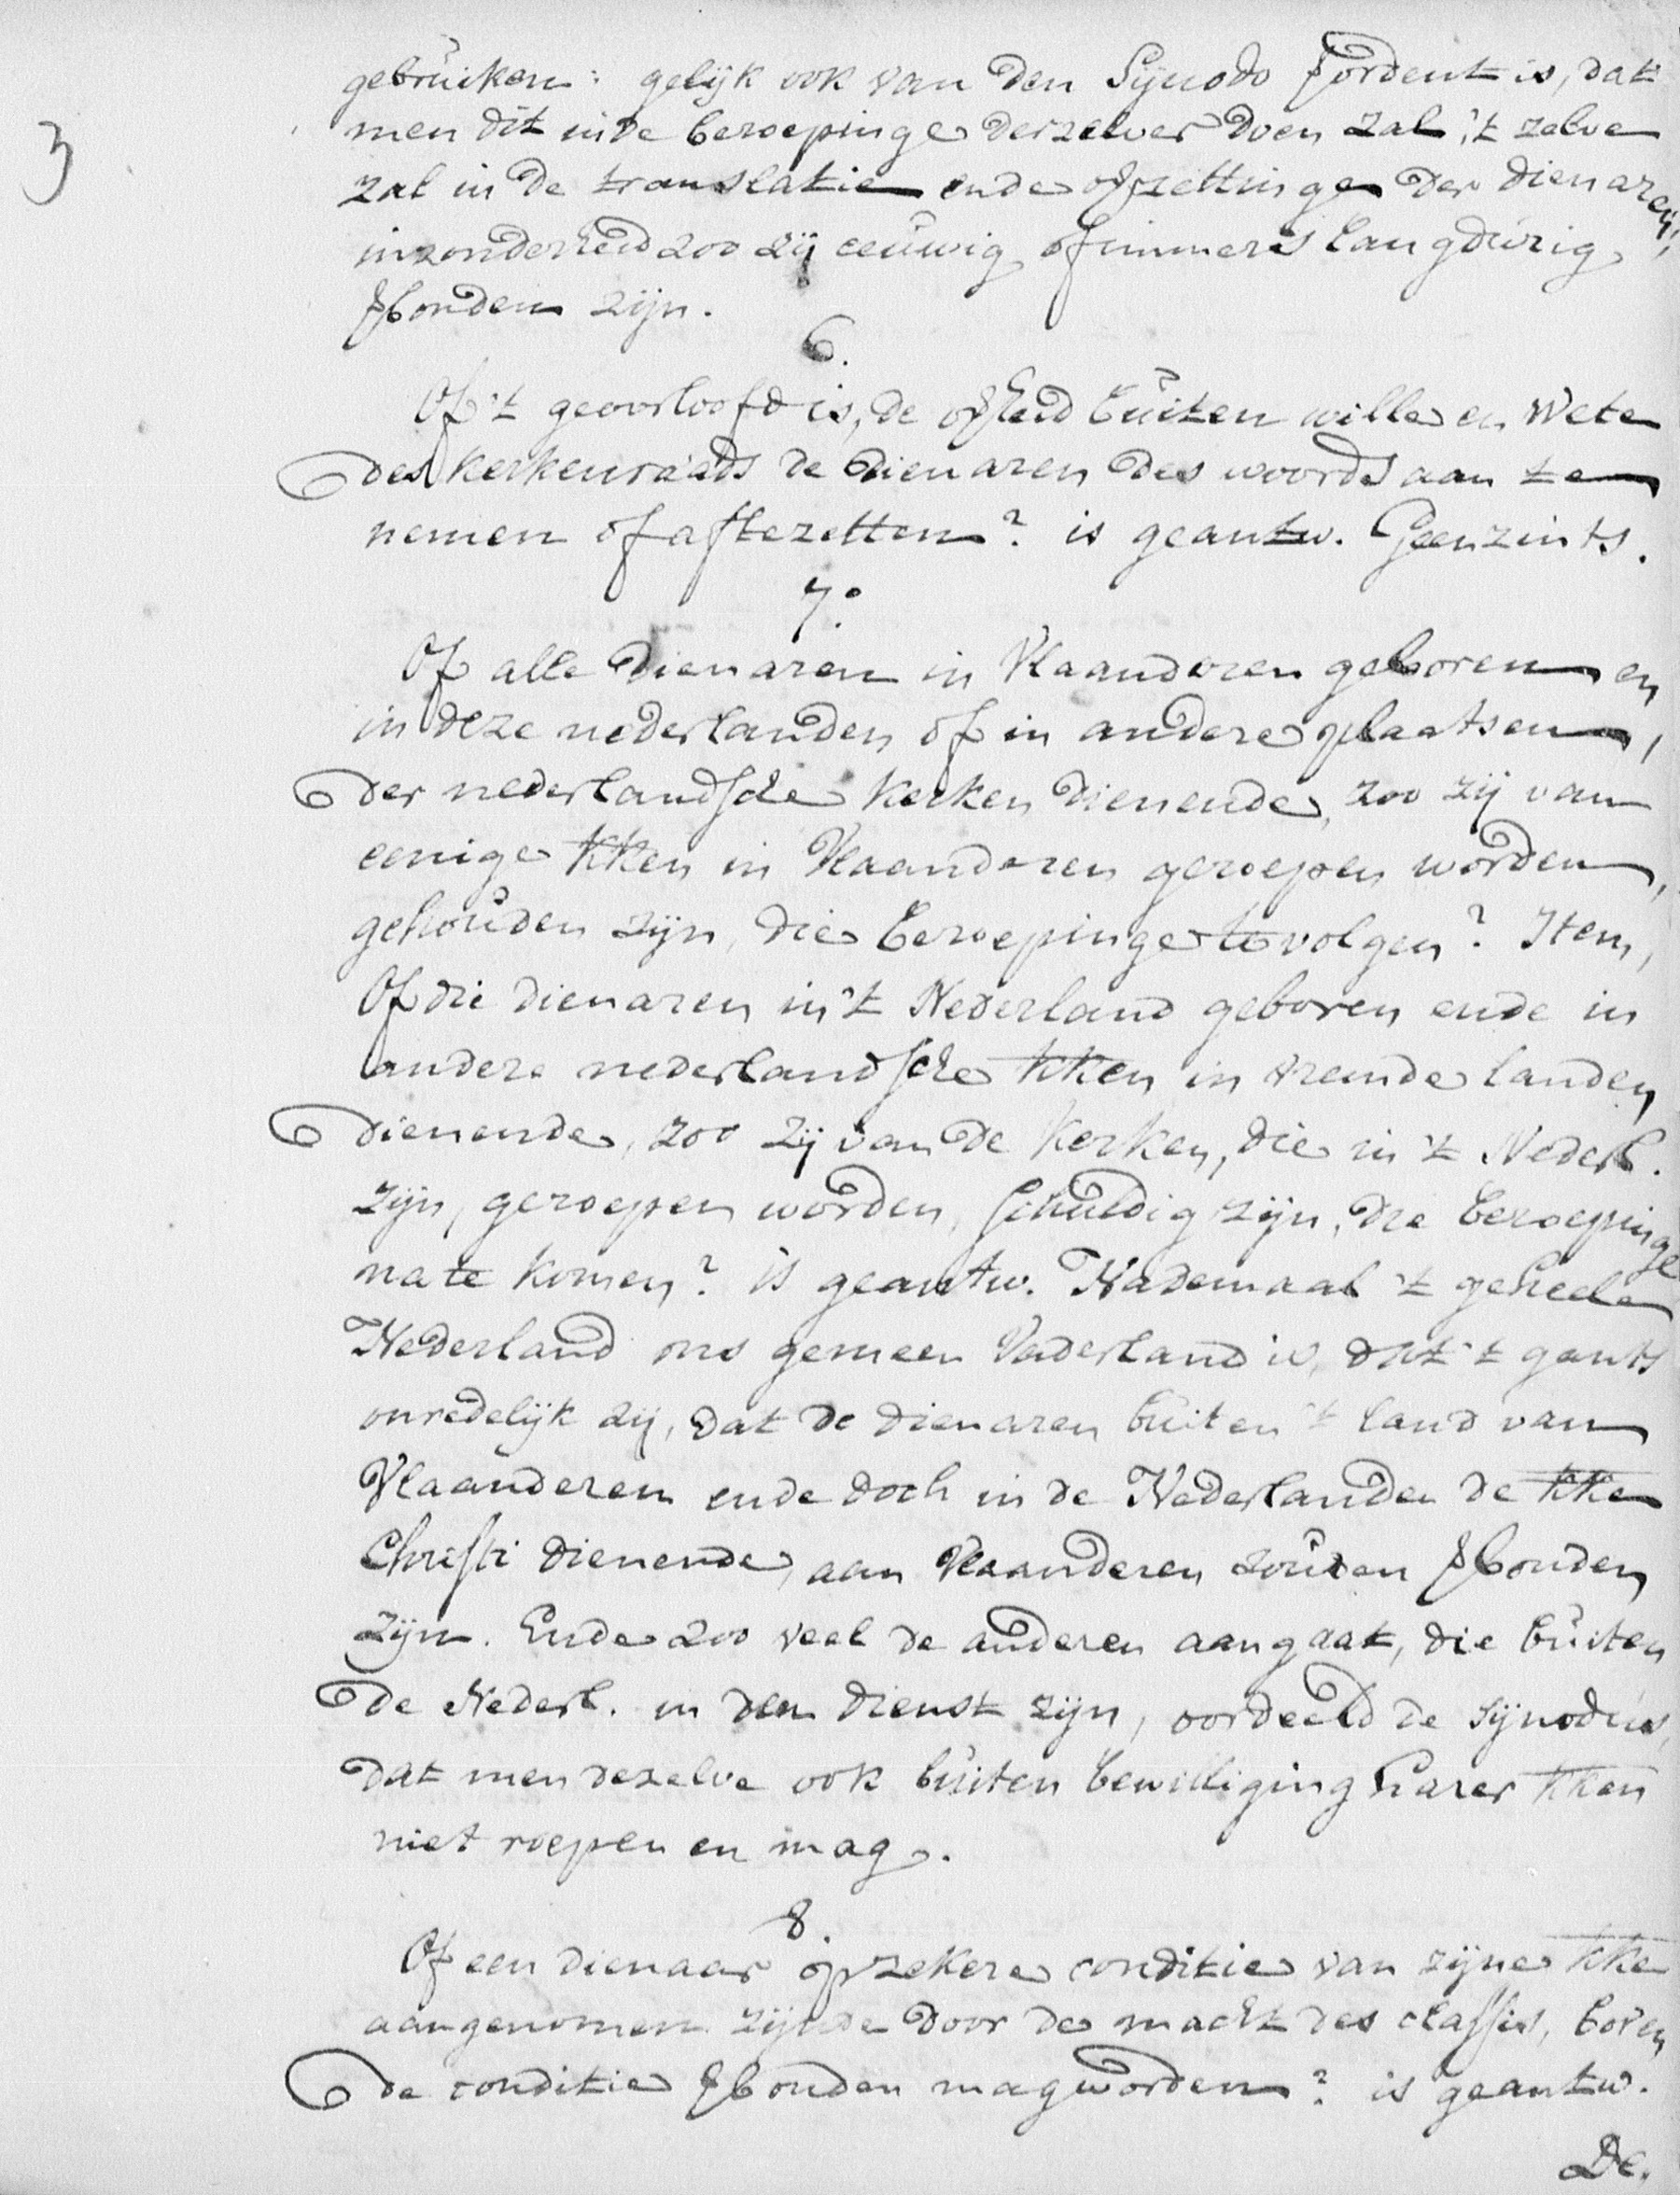 gebruiken: gelijk ook van den Sijnodo ſordent is, dat
3
men dit in de beroepinge derzelver doen zal, 't zelve
zal in de translatie ende ofzettinge der dienaren,
inzonderheid zoo zij eeuwig of immers langdurig
ſbonden zijn.
6.
Of 't geoorloofd is, de ofheid buiten wille en wete
des kerkenraads de dienaren des woords aan te
nemen of aftezetten? is geantw. Geenzints.
7.
Of alle dienaren in Vlaanderen geboren en
in deze nederlanden of in andere plaatsen,
der nederlandsche kerken dienende, zoo zij van
eenige kken in Vlaanderen geroepen worden,
gehouden zijn, die beroepinge te volgen? Item,
Of die dienaren in 't Nederland geboren ende in
andere nederlandsche kken in vremde landen
dienende, zoo zij van de kerken, die in 't Nederl.
zijn, geroepen worden, schuldig zijn, die beroepinge
na te komen? is geantw. Nademaal 't geheele
Nederland ons gemeen Vaderland is, dat 't gants
onredelijk zij, dat de dienaren buiten 't land van
Vlaanderen ende doch in de Nederlanden de kke
Christi dienende, aan Vlaanderen zouden ſbonden
zijn. Ende zoo veel de anderen aangaat, die buiten
de Nederl. in den dienst zijn, oordeeld de Sijnodus,
dat men dezelve ook buiten bewilliging harer kken
niet roepen en mag.
8.
Of een dienaar op zekere conditie van zijne kke
aangenomen zijnde door de macht des classis, boven
de conditie ſbonden mag worden? is geantw.
De.